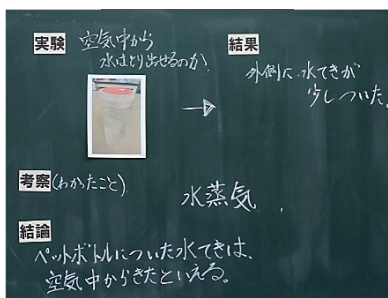 実験 空気中から
水はとり出せるのか?
結果
外側に水てきが
少しついた。
考察(わかったこと)
水蒸気
結論
ペットボトルについた水てきは、
空気中からきたといえる。